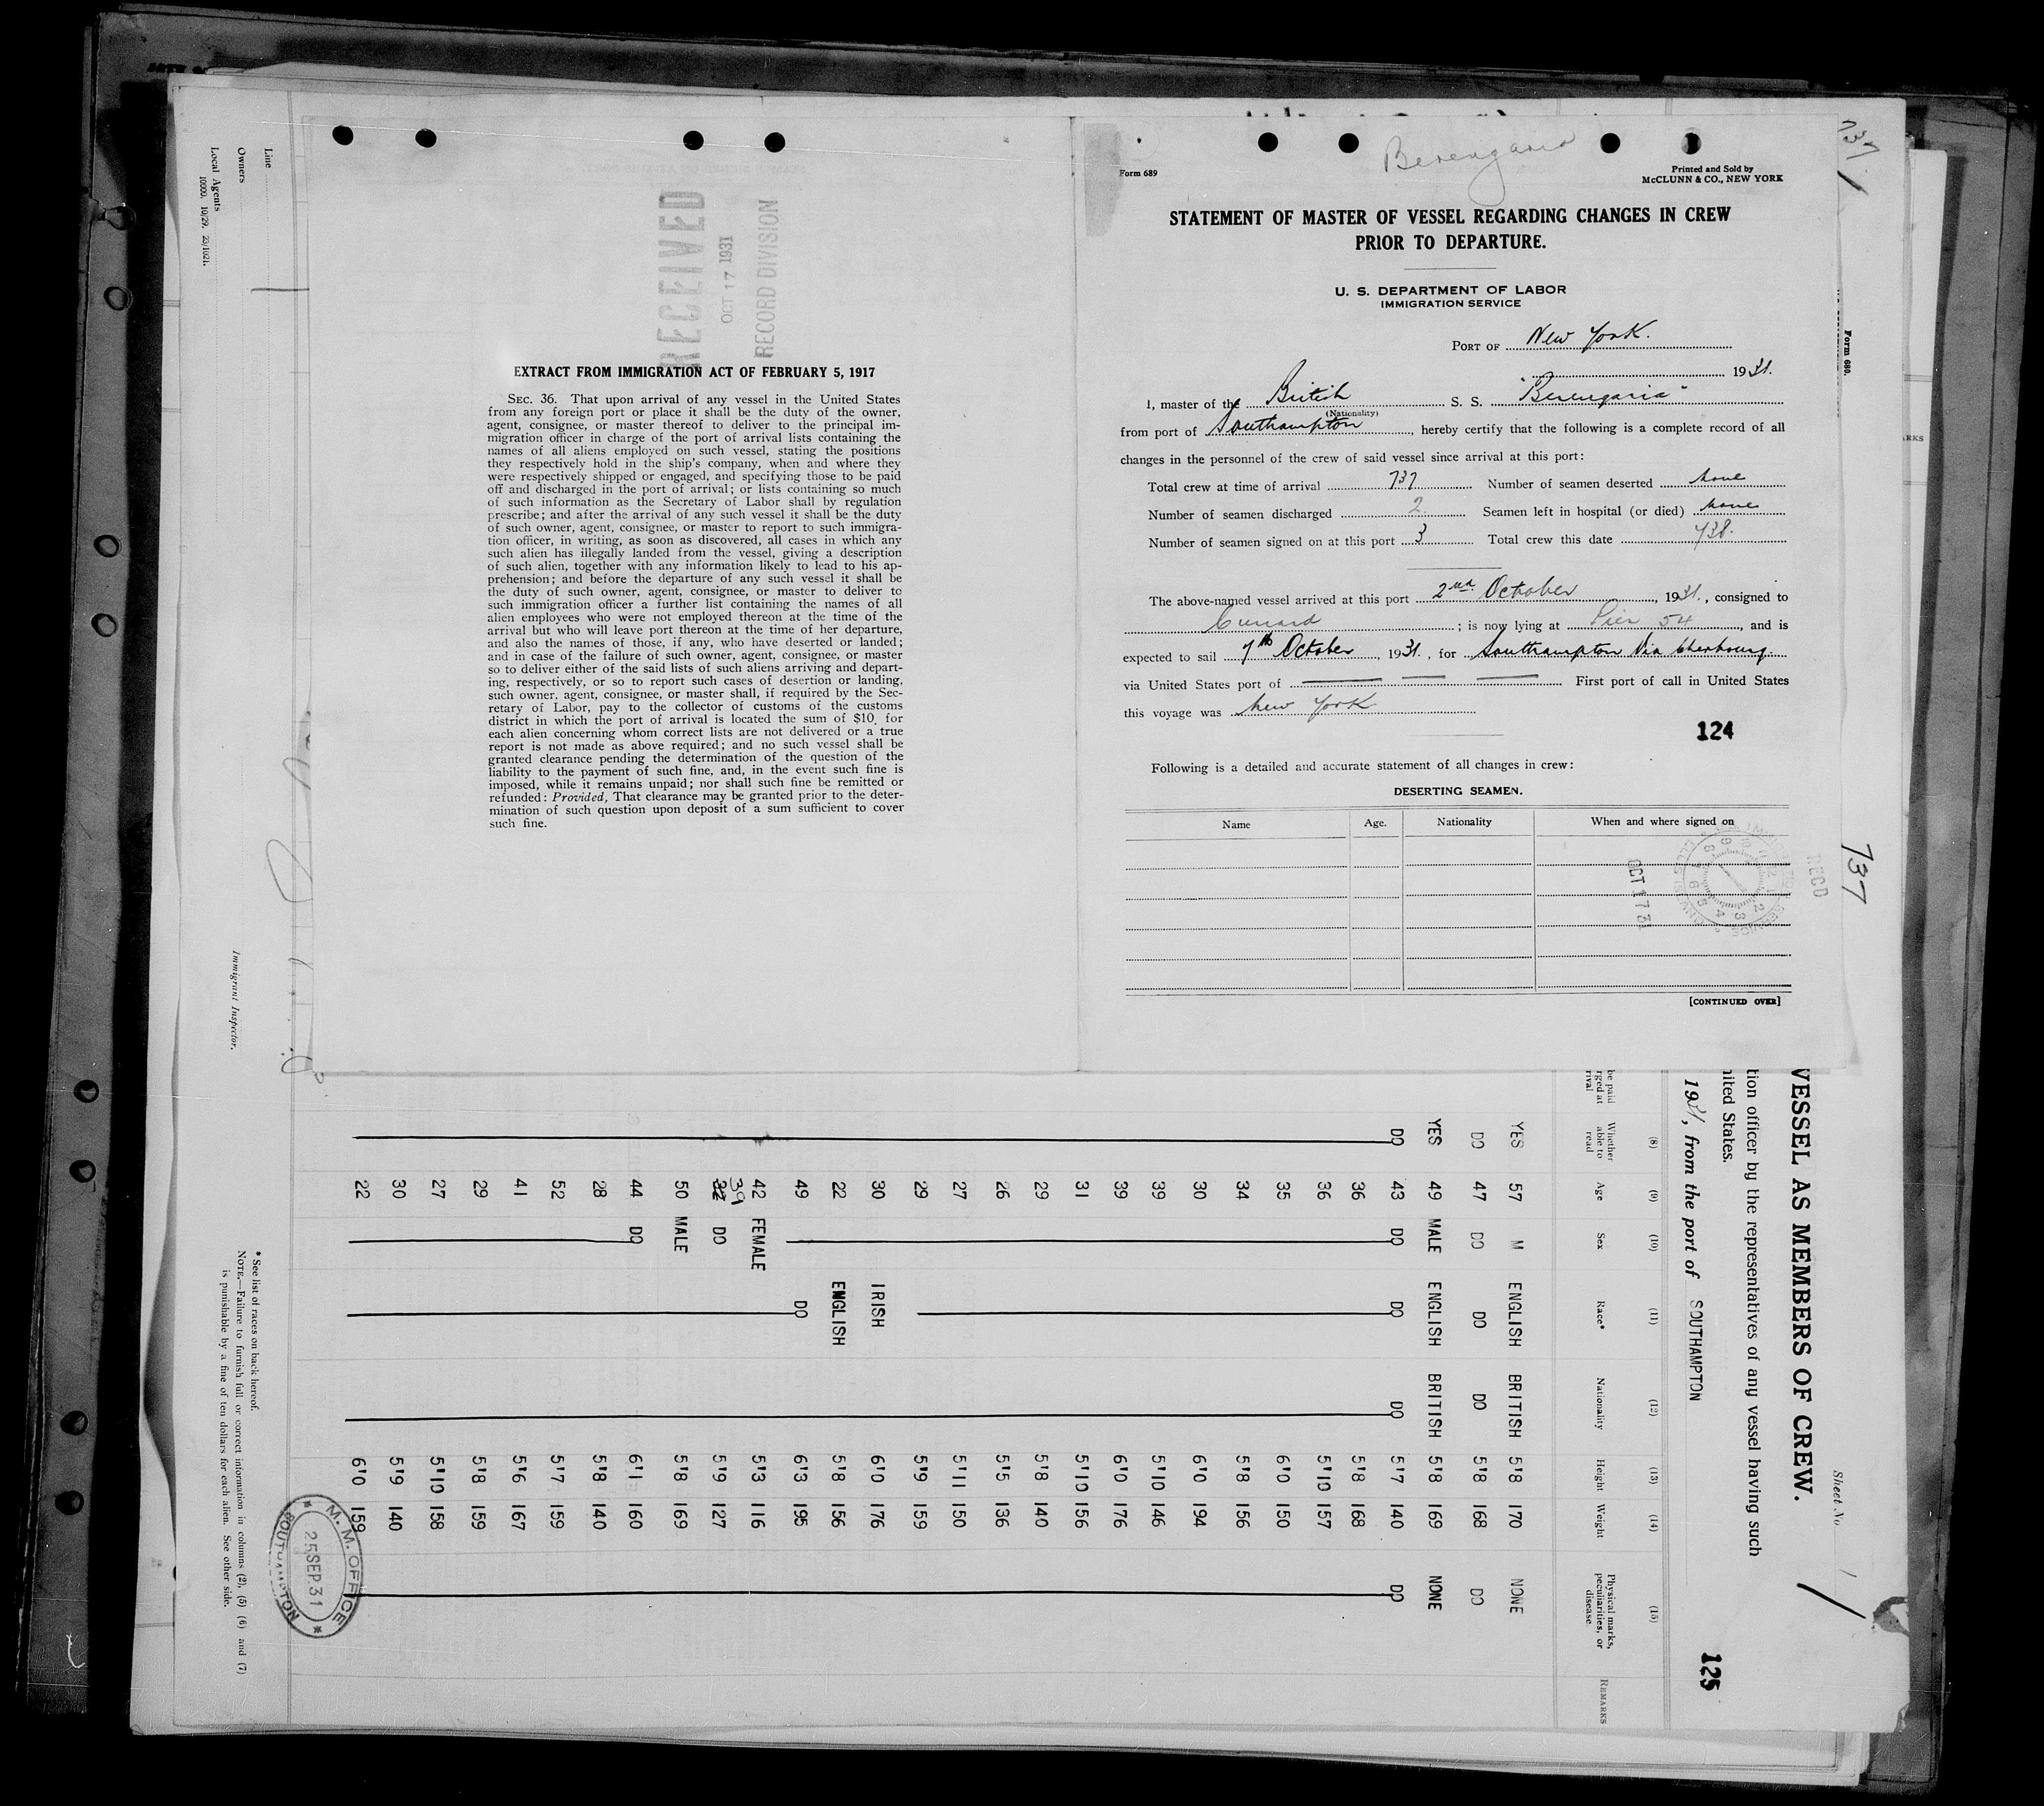 Line
Owners
Local Agents
10000. 10/29. 23/1021.
Immigrant Inspector.
RECEIVED
OCT 17 1931
RECORD DIVISION
EXTRACT FROM IMMIGRATION ACT OF FEBRUARY 5, 1917
SEC. 36. That upon arrival of any vessel in the United States
from any foreign port or place it shall be the duty of the owner,
agent, consignee, or master thereof to deliver to the principal im-
migration officer in charge of the port of arrival lists containing the
names of all aliens employed on such vessel, stating the positions
they respectively hold in the ship's company, when and where they
were respectively shipped or engaged, and specifying those to be paid
off and discharged in the port of arrival; or lists containing so much
of such information as the Secretary of Labor shall by regulation
prescribe; and after the arrival of any such vessel it shall be the duty
of such owner, agent, consignee, or master to report to such immigra-
tion officer, in writing, as soon as discovered, all cases in which any
such alien has illegally landed from the vessel, giving a description
of such alien, together with any information likely to lead to his ap-
prehension; and before the departure of any such vessel it shall be
the duty of such owner, agent, consignee, or master to deliver to
such immigration officer a further list containing the names of all
alien employees who were not employed thereon at the time of the
arrival but who will leave port thereon at the time of her departure,
and also the names of those, if any, who have deserted or landed;
and in case of the failure of such owner, agent, consignee, or master
so to deliver either of the said lists of such aliens arriving and depart-
ing, respectively, or so to report such cases of desertion or landing,
such owner, agent, consignee, or master shall, if required by the Sec-
retary of Labor, pay to the collector of customs of the customs
district in which the port of arrival is located the sum of $10 for
each alien concerning whom correct lists are not delivered or a true
report is not made as above required; and no such vessel shall be
granted clearance pending the determination of the question of the
liability to the payment of such fine, and, in the event such fine is
imposed, while it remains unpaid; nor shall such fine be remitted or
refunded: Provided, That clearance may be granted prior to the deter-
mination of such question upon deposit of a sum sufficient to cover
such fine.
Berengaria
Form 689
Printed and Sold by
McCLUNN & CO., NEW YORK
STATEMENT OF MASTER OF VESSEL REGARDING CHANGES IN CREW
PRIOR TO DEPARTURE.
U. S. DEPARTMENT OF LABOR
IMMIGRATION SERVICE
PORT OF New York.
1931.
I, master of the British S. S. "Berengaria"
(Nationality)
from port of Southampton, hereby certify that the following is a complete record of all
changes in the personnel of the crew of said vessel since arrival at this port:
Total crew at time of arrival 737 Number of seamen deserted none
Number of seamen discharged 2 Seamen left in hospital (or died) none
Number of seamen signed on at this port 3 Total crew this date 738.
The above-named vessel arrived at this port 2nd October, 1931., consigned to
Cunard; is now lying at Pier 54, and is
expected to sail 7th October, 1931., for Southampton Via Cherbourg.
via United States port of First port of call in United States
this voyage was New York
124
Following is a detailed and accurate statement of all changes in crew:
DESERTING SEAMEN.
Name Age. Nationality When and where signed on
OCT 17 31
RECD
[CONTINUED OVER]
737
Form 680.
RKS
737
VESSEL AS MEMBERS OF CREW.
Sheet No. 1
tion officer by the representatives of any vessel having such
nited States.
1931, from the port of SOUTHAMPTON
125
(8) (9) (10) (11) (12) (13) (14) (15)
be paid
rged at
rival
Whether able to read Age Sex Race* Nationality Height Weight Physical marks, peculiarities, or disease REMARKS
YES 57 M ENGLISH BRITISH 5'8 170 NONE
DO 47 DO DO DO 5'8 168 DO
YES 49 MALE ENGLISH BRITISH 5'8 169 NONE
DO 43 DO DO DO 5'7 140 DO
36 5'8 168
36 5'10 157
35 6'0 150
34 5'8 156
30 6'0 194
39 5'10 146
39 6'0 176
31 5'10 156
29 5'8 140
26 5'5 136
27 5'11 150
29 5'9 159
30 IRISH 6'0 176
22 ENGLISH 5'8 156
49 DO 6'3 195
42 FEMALE 5'3 116
39 DO 5'9 127
50 MALE 5'8 169
44 DO 6'1 160
28 5'8 140
52 5'7 159
41 5'6 167
29 5'8 159
27 5'10 158
30 5'9 140
22 6'0 159
* See list of races on back hereof.
NOTE.—Failure to furnish full or correct information in columns (2), (5) (6) and (7)
is punishable by a fine of ten dollars for each alien. See other side.
M. M. OFFICE
25 SEP. 31
SOUTHAMPTON